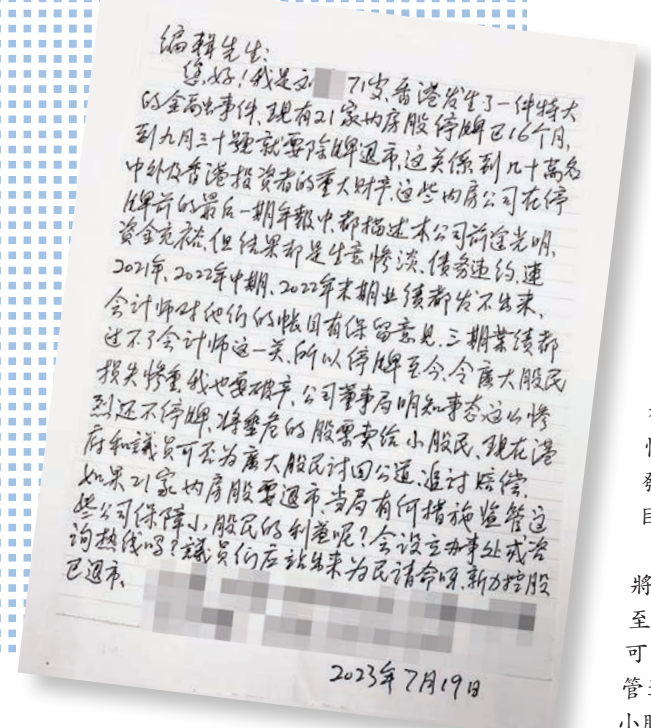 编辑先生:
您好!我是文 71岁,香港发生了一件特大
的金融事件,现有21家内房股停牌已16个月,
到九月三十號就要除牌退市,这关係到几十萬名
中外及香港投資者的重大财产,这些内房公司在停
牌前的最后一期年報中,都描述本公司前途光明,
資金充裕,但结果却是生意惨淡、债务违约,連
2021年、2022年中期、2022年末期业绩都发不出来,
会计师对他们的帳目有保留意见,三期業绩都
过不了会计师这一关,所以停牌至今,令廣大股民
损失惨重,我也要破产,公司董事局明知事态这么惨
烈还不停牌,将垫危的股票卖给小股民,现在港
府和議員可否为廣大股民讨回公道,追讨赔偿,
如果21家内房股要退市,当局有何措施监管这
些公司保障小股民的利益呢?会设立办事处或咨
询热线吗?議員们应站出来为民请命呀,新力控股
已退市。
2023年7月19日
發
目
將
至
可
管
小股